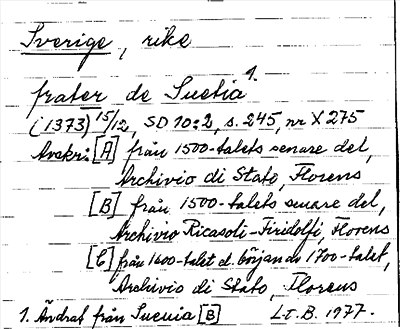 Sverige, rike
frater de Suetia 1.
(1373) 15/12, SD 10:2, s. 245, nr X 275
Avskr: [A] från 1500-talets senare del,
Archivio di Stato, Florens
[B] från 1500-talets senare del,
Archivio Ricasoli-Firidolfi, Florens
[C] från 1600-talet el. början av 1700-talet,
Archivio di Stato, Florens
1. Ändrat från Sucuia [B] L.T.B. 1977.